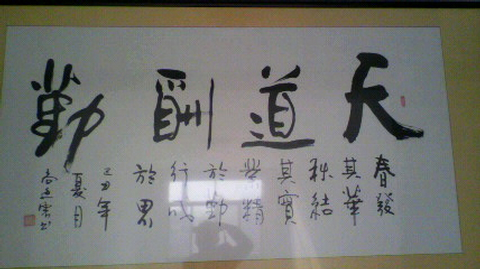 天道酬勤
春發
其華
秋結
其實
業精
於勤
行成
於思
己丑年
夏月